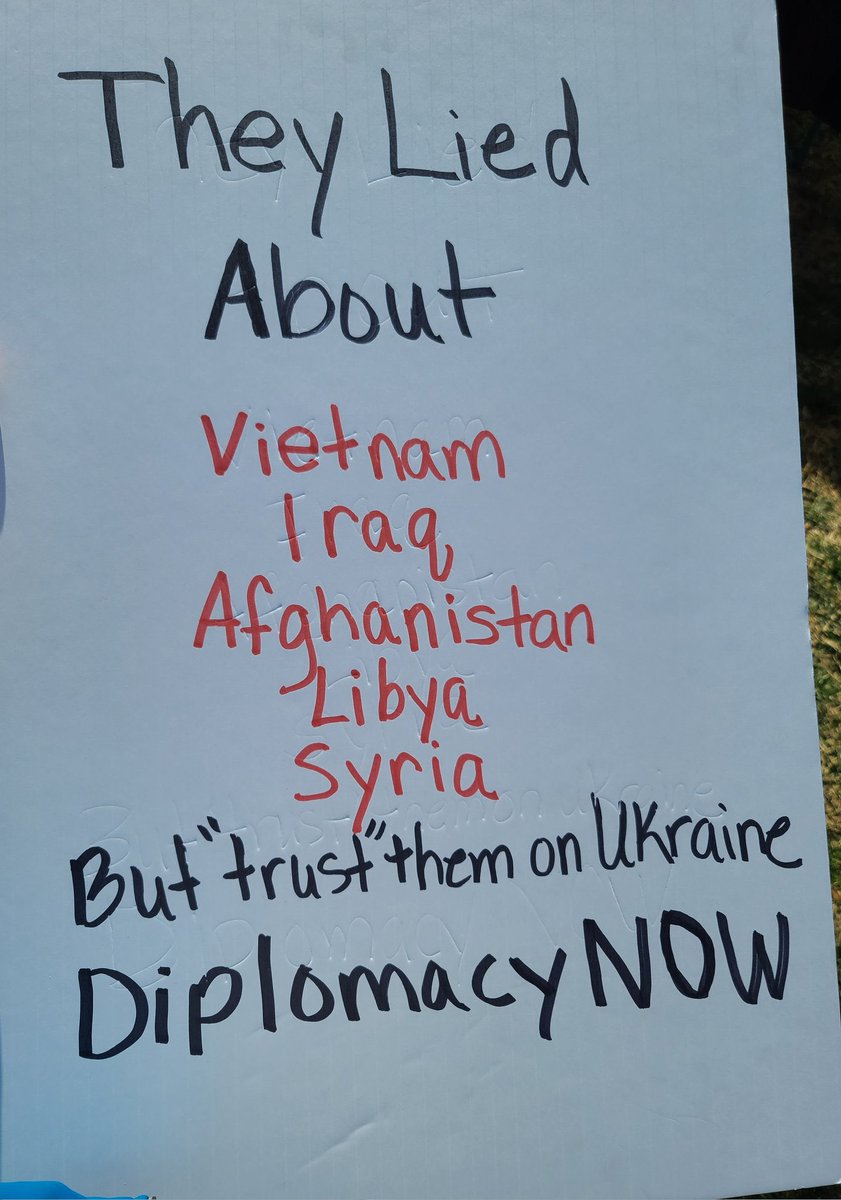 They Lied
About
Vietnam
Iraq
Afghanistan
Libya
Syria
But "trust" them on Ukraine
Diplomacy NOW